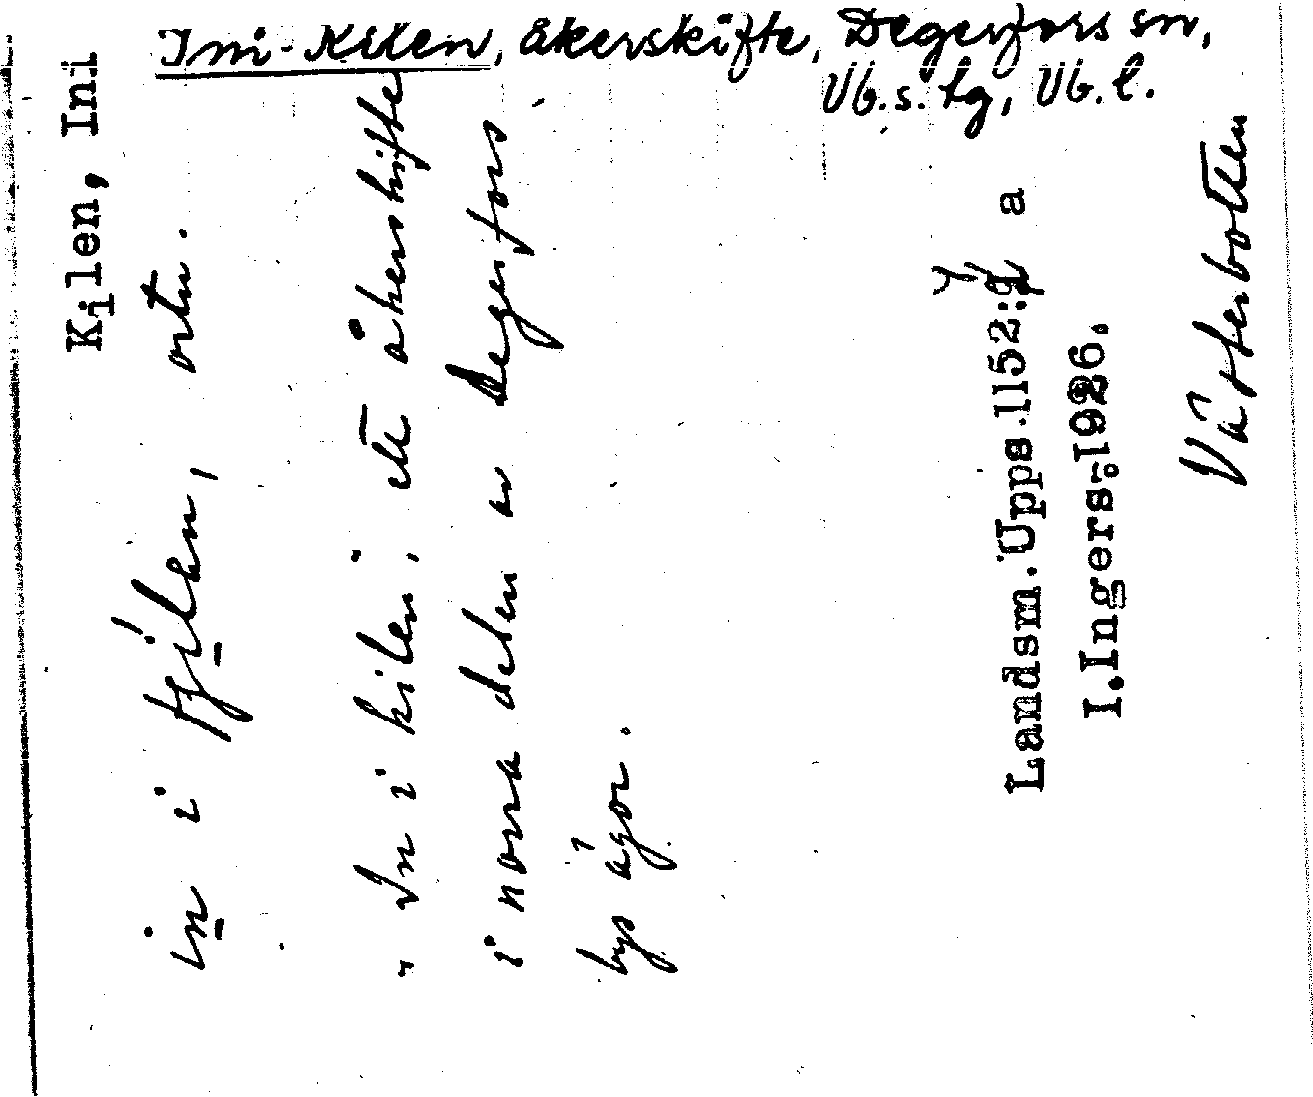 Ini-Kilen, åkerskifte, Degerfors sn,
Vb.s. tg, Vb.l.
Kilen, Ini
in i tjilen, ortn.
"In i kilen; ett åkerskifte
i norra delen av Degerfors
bys ägor.
Landsm. Upps. 1152:y a
I.Ingers.1926.
Västerbotten